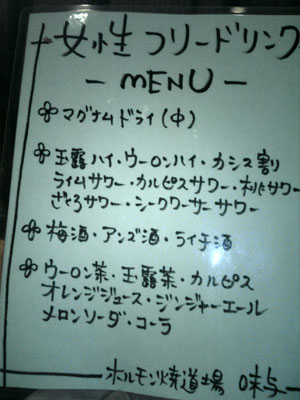 女性フリードリンク
ーMENUー
マグナムドライ(中)
玉露ハイ・ウーロンハイ・カシス割
ライムサワー・カルピスサワー・桃サワー
ざくろサワー・シークワーサーサワー
梅酒・アンズ酒・ライチ酒
ウーロン茶・玉露茶・カルピス
オレンジジュース・ジンジャーエール
メロンソーダ・コーラ
ホルモン焼道場 味与